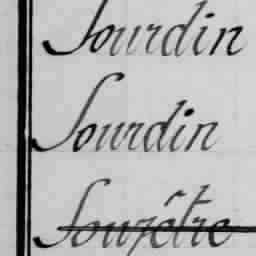 Jourdin
Jourdin
Jouzêtre